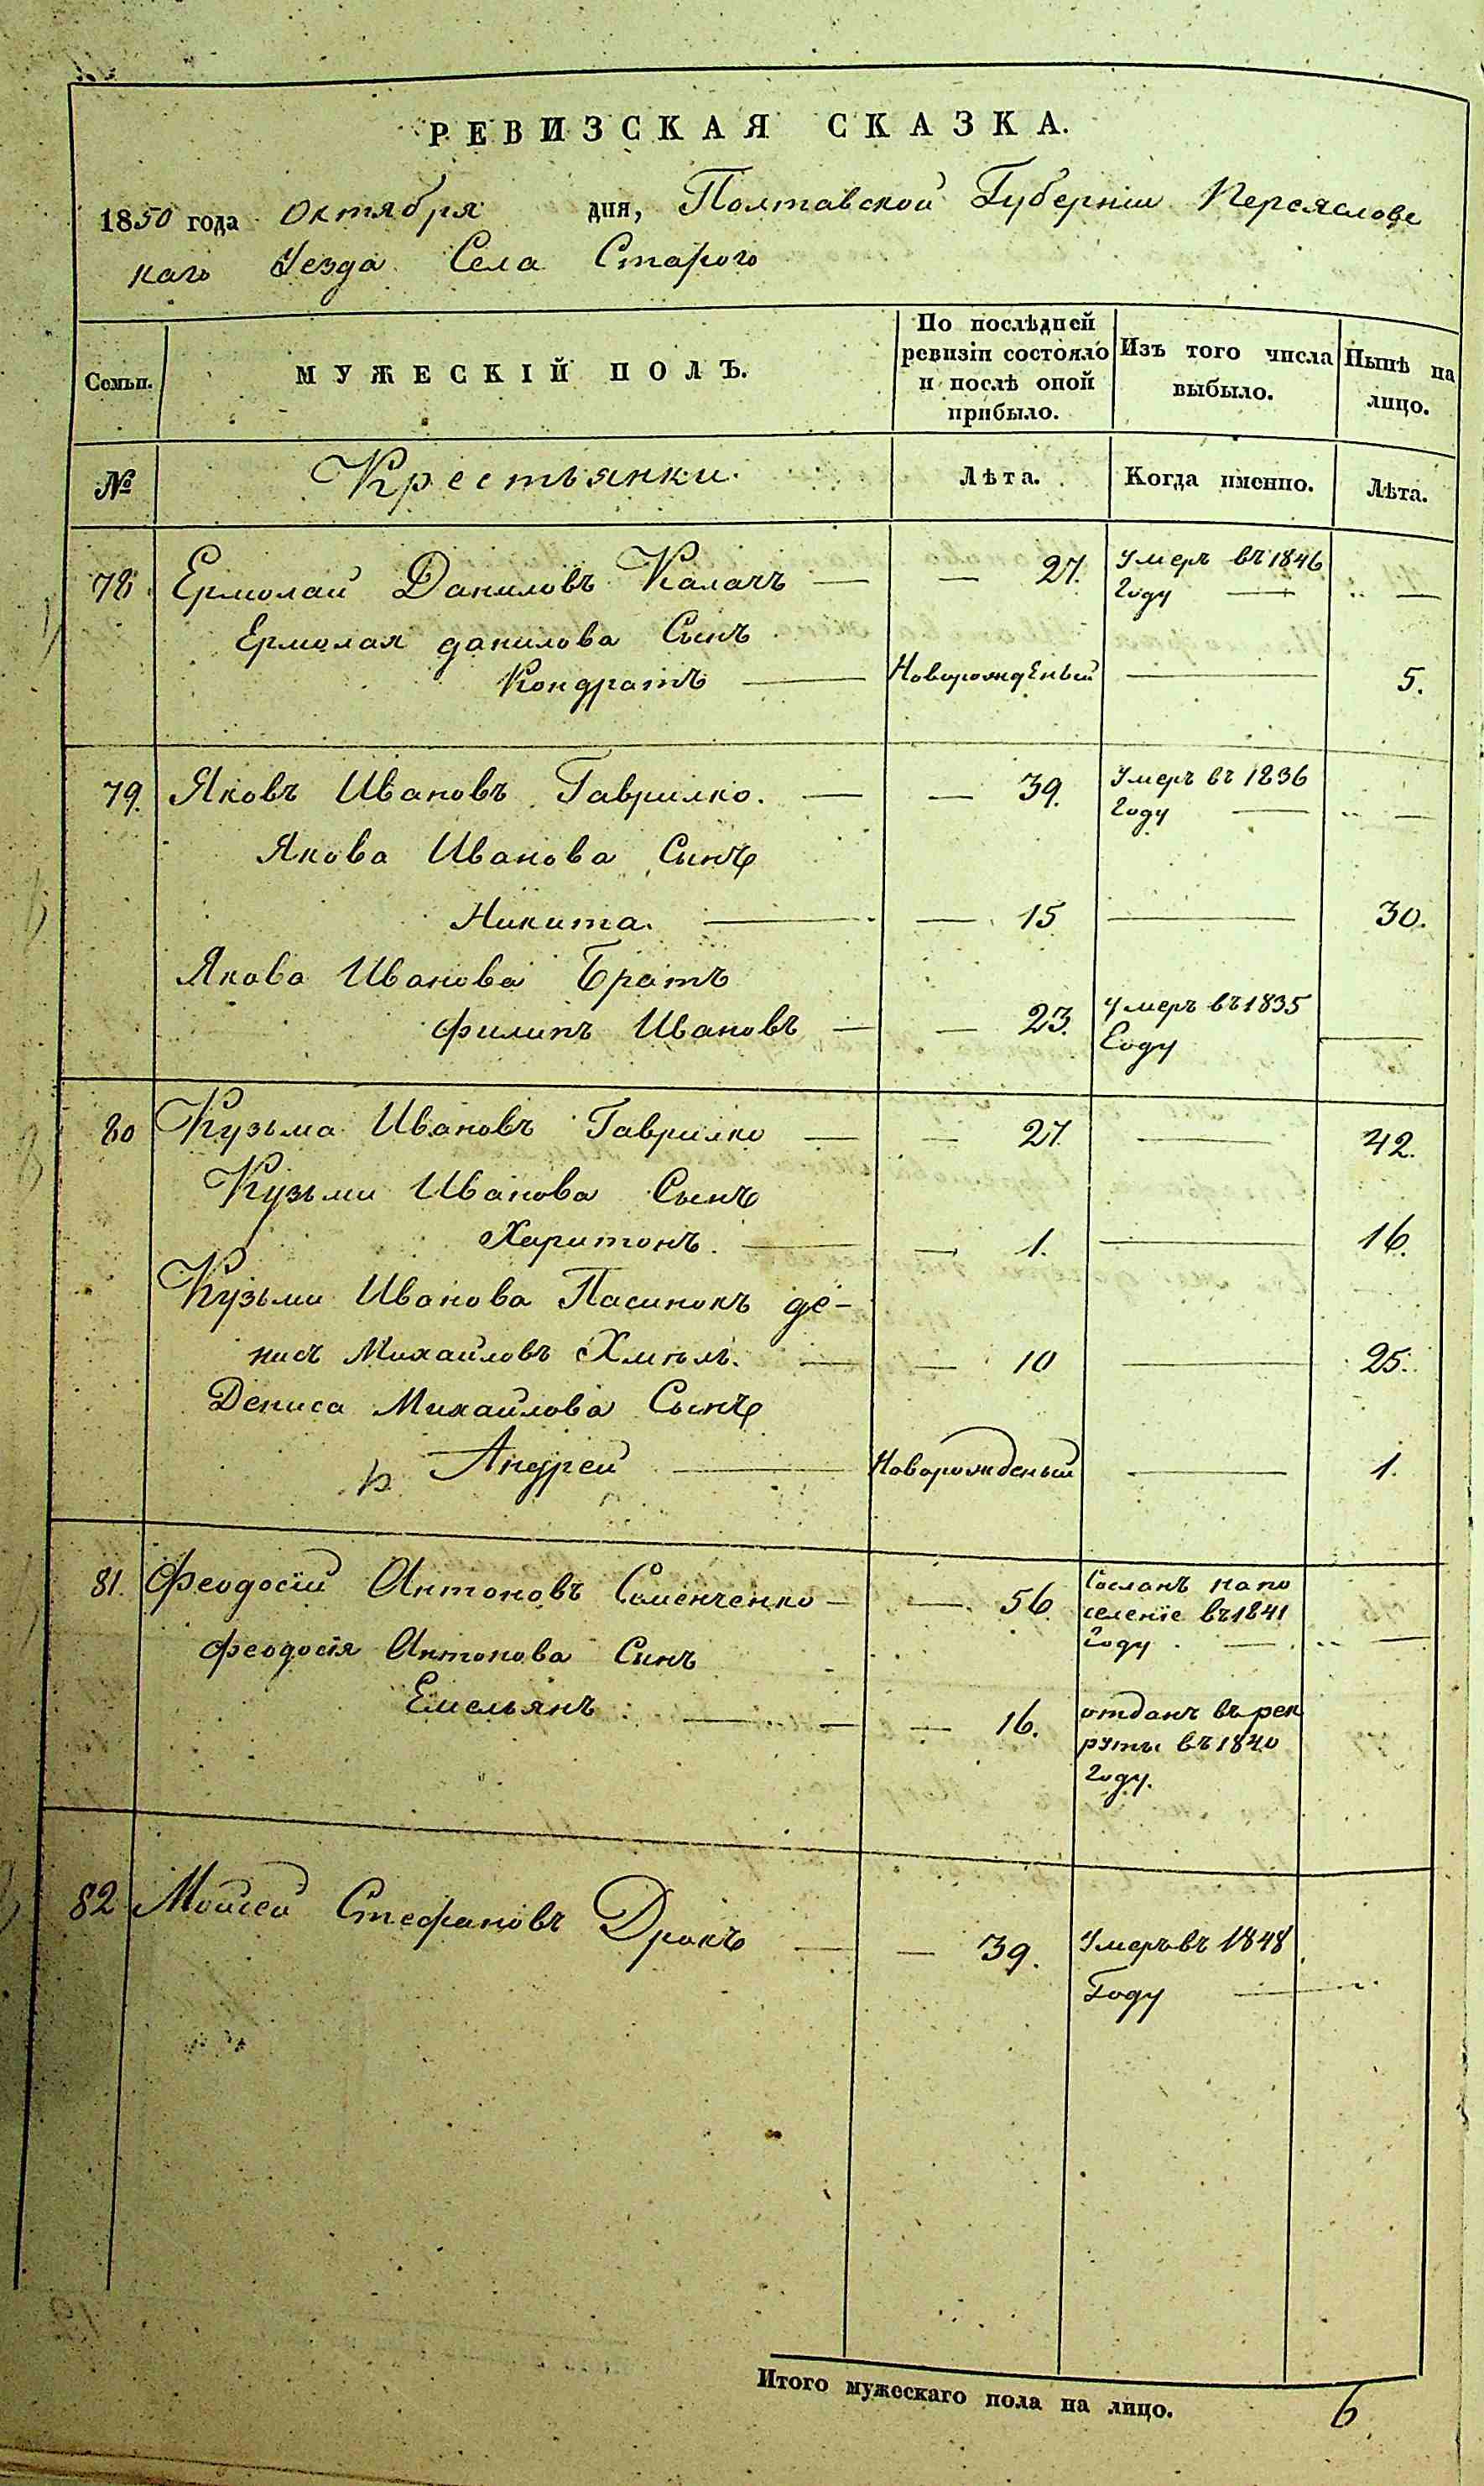 РЕВИЗСКАЯ СКАЗКА.
1850 года Октября дня, Полтавской Губерніи Переяславс
каго Уезда Села Старого
Семьи. МУЖЕСКІЙ ПОЛЪ. По послѣдней ревизіи состояло и послѣ оной прибыло. Изъ того числа выбыло. Нынѣ на лицо.
№ Крестьянки. Лѣта. Когда именно. Лѣта.
78. Ермолай Даниловъ Калачъ — — 27. Умеръ въ 1846
Году — —
Ермолая данилова Сынъ
Кондратъ — Новорожденый — 5.
79. Яковъ Ивановъ Гаврилко. — — 39. Умеръ въ 1836
Году — —
Якова Иванова Сынъ
Никита. — — 15 — 30.
Якова Иванова Братъ
Филипъ Ивановъ — — 23. Умеръ въ 1835
Году —
80 Кузьма Ивановъ Гаврилко — — 27. — 42.
Кузьми Иванова Сынъ
Харитонъ. — — 1. — 16.
Кузьми Иванова Пасинокъ де-
нисъ Михайловъ Хмѣль. — — 10 — 25.
Дениса Михайлова Сынъ
Андрей — Новорожденый — 1.
81. Феодосій Антоновъ Семенченко — — 56 Сосланъ на по
селеніе въ 1841
Году — —
Феодосія Антонова Синъ
Емельянъ — — — 16. отданъ въ рек
руты въ 1840
Году.
82 Мойсей Стефановъ Дрокъ — — 39. Умеръ въ 1848
Году —
Итого мужескаго пола на лицо. 6